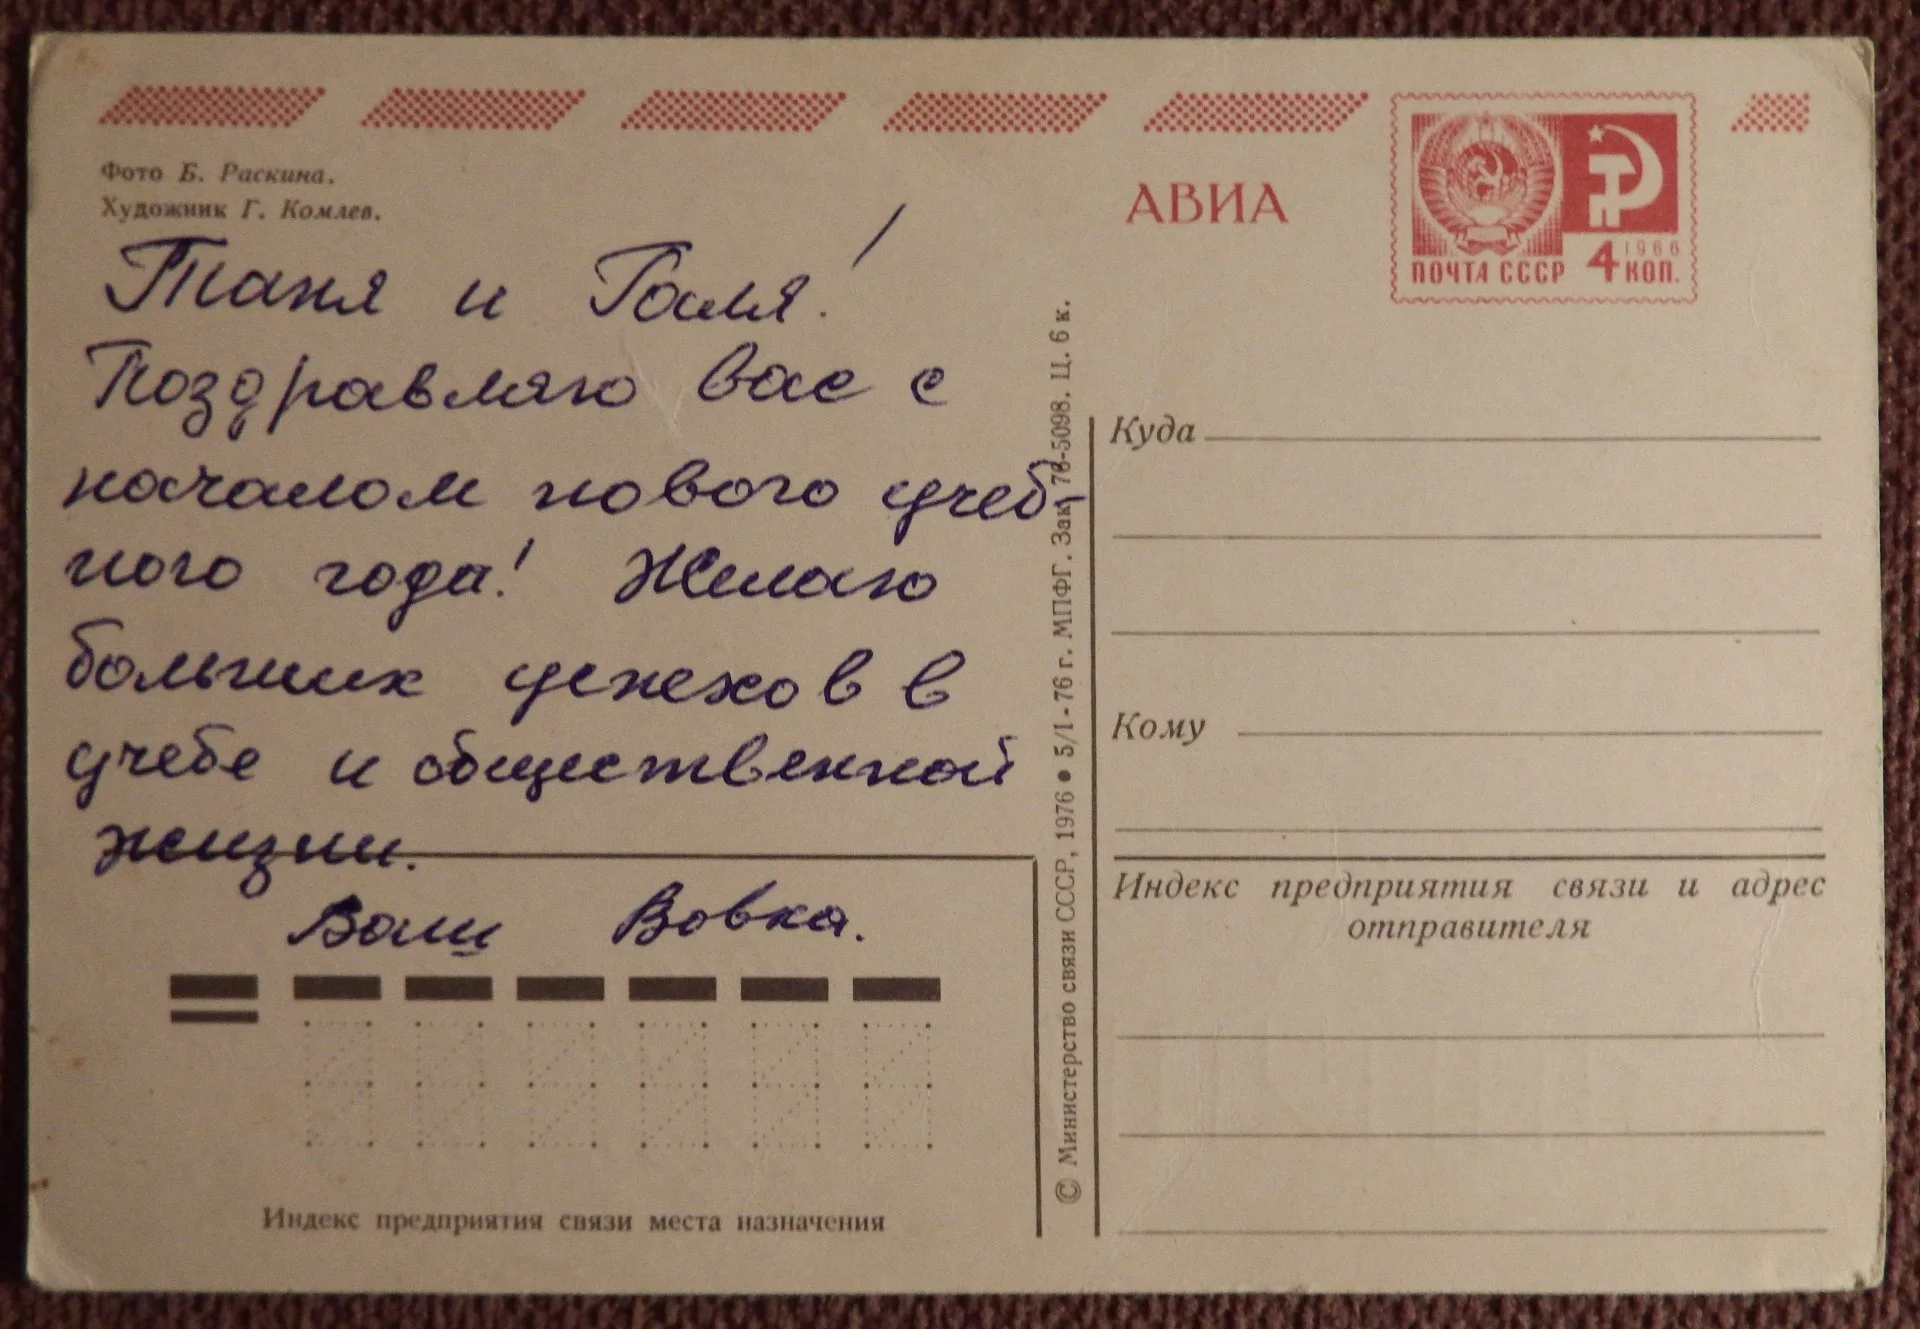 Фото Б. Раскина.
Художник Г. Комлев.
Таня и Галя!
Поздравляю вас с
началом нового учеб-
ного года! Желаю
больших успехов в
учебе и общественной
жизни.
Ваш Вовка.
Индекс предприятия связи места назначения
© Министерство связи СССР, 1976 ● 5/I-76 г. МПФГ. Зак. 76-5098. Ц. 6 к.
АВИА
1966
ПОЧТА СССР 4 КОП.
Куда
Кому
Индекс предприятия связи и адрес
отправителя